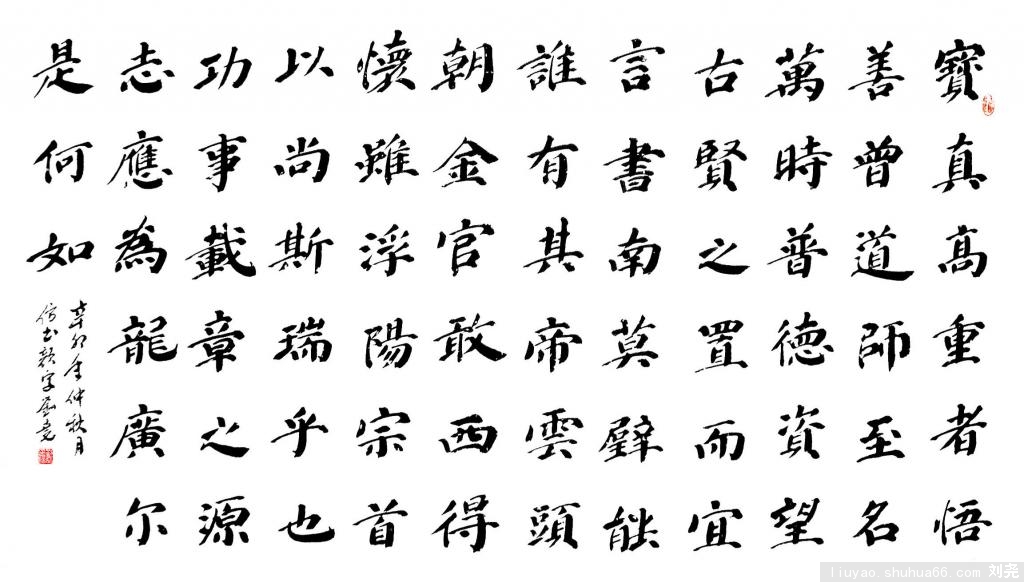 寶真高重者悟
善曾道師至名
萬時普德資望
古賢之置而宜
言書南莫躄能
誰有其帝雲頭
朝金官敢西得
懷雖浮陽宗首
以尚斯瑞乎也
功事載章之源
志應為龍廣尔
是何如
辛卯年仲秋月
仿書顏字劉堯
liuyao.shuhua66.com 刘尧